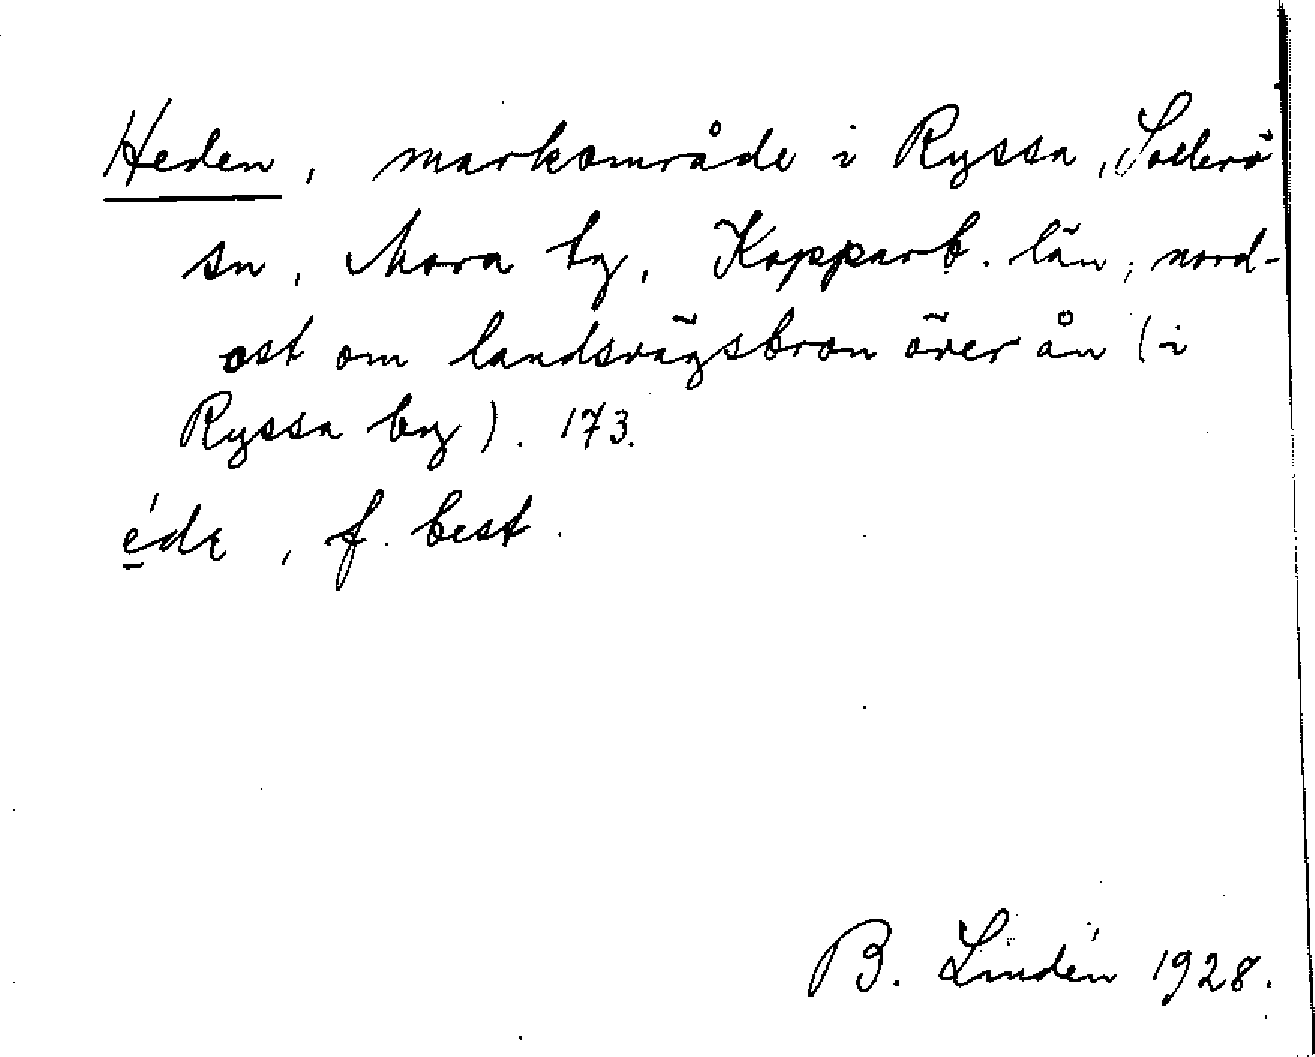 Heden, markområde i Ryssa, Sollerö
sn, Mora tg, Kopparb. län; nord-
ost om landsvägsbron över ån (i
Ryssa by). 173.
éde, f. best.
B. Lindén 1928.